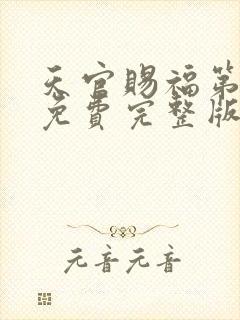 天官赐福第
免费完整版
元音元音